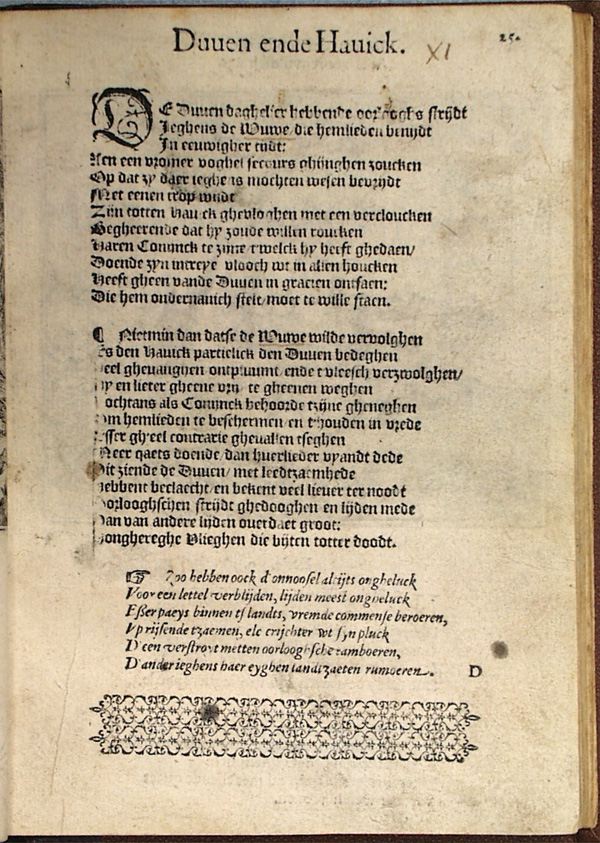 Duuen ende Hauick.
XI
25.
DE Duuen daghelicx hebbende oorlooghs strijdt
Jeghens de Wuwe, die hemlieden benijdt
In eeuwigher tijdt:
Aen een vromer voghel secours ghijnghen zoucken
Op dat zy daer ieghens mochten wesen bevrijdt
Met eenen trop wijdt
Zijn totten Hauick ghevloghen met een vercloucken
Begheerende dat hy zoude willen roucken
Haren Coninck te zijne, twelck hy heeft ghedaen/
Doende zyn vlooch wt in allen houcken
Heeft gheen vande Duuen in gracien ontfaen:
Die hem onder stelt/ moet te wille staen.
¶ Nietmin dan datse de Wuwe wilde vervolghen
es den Hauick partielick den Duuen bedeghen
eel ghevanghen ontpluumt/ ende tvleesch verzwolghen/
y en lieter gheene vry/ te gheenen weghen
ochtans als Coninck behoorde tzijne gheneghen
om hemlieden te beschermen en thouden in vrede
esser gheel contrarie ghevallen tseghen
Meer quets doende/ dan huerlieder vyandt dede
Dit ziende de Duuen/ met leedtzaemhede
hebbent beclaecht/ en bekent veel liever ter noodt
oorlooghschen strijdt ghedooghen en lijden mede
Dan van andere lijden overdaet groot:
ongherighe Vlieghen die bijten totter doodt.
☞ Zoo hebben oock d'onnoosel altijts ongheluck
Voor een lettel verblijden, lijden meest ongheluck
Esser paeys binnen tslandts, vremde commense beroeren,
Vprijsende tzaemen, elc crijchter wt syn pluck
D'een verstroyt metten oorlooghsche tamboeren,
D'ander ieghens haer eyghen landtzaeten rumoeren.
D